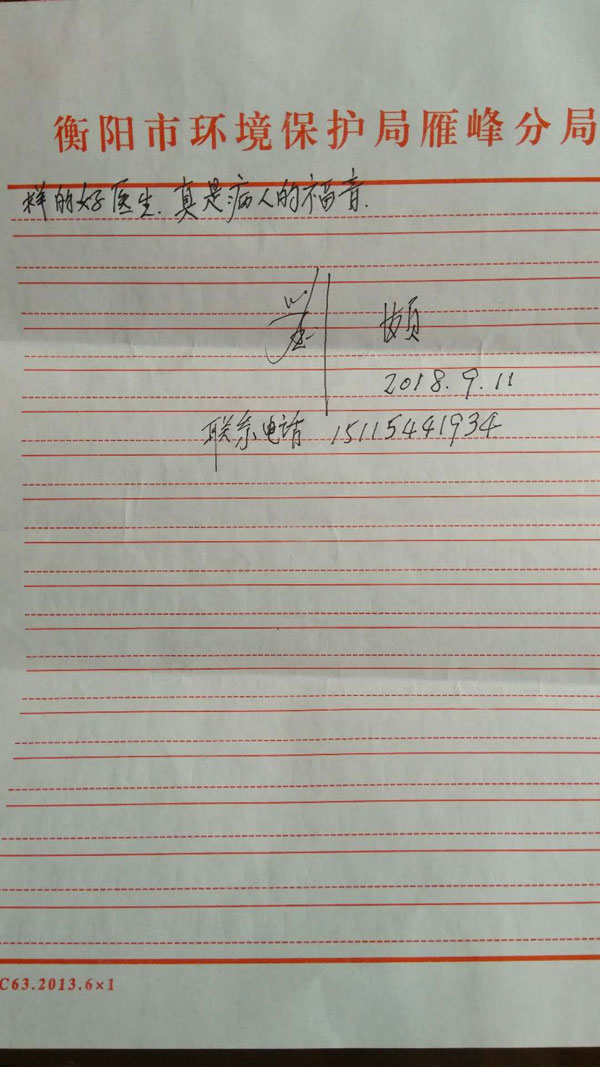 衡阳市环境保护局雁峰分局
样的好医生.真是病人的福音.
2018.9.11
联系电话 15115441934
C63.2013.6×1